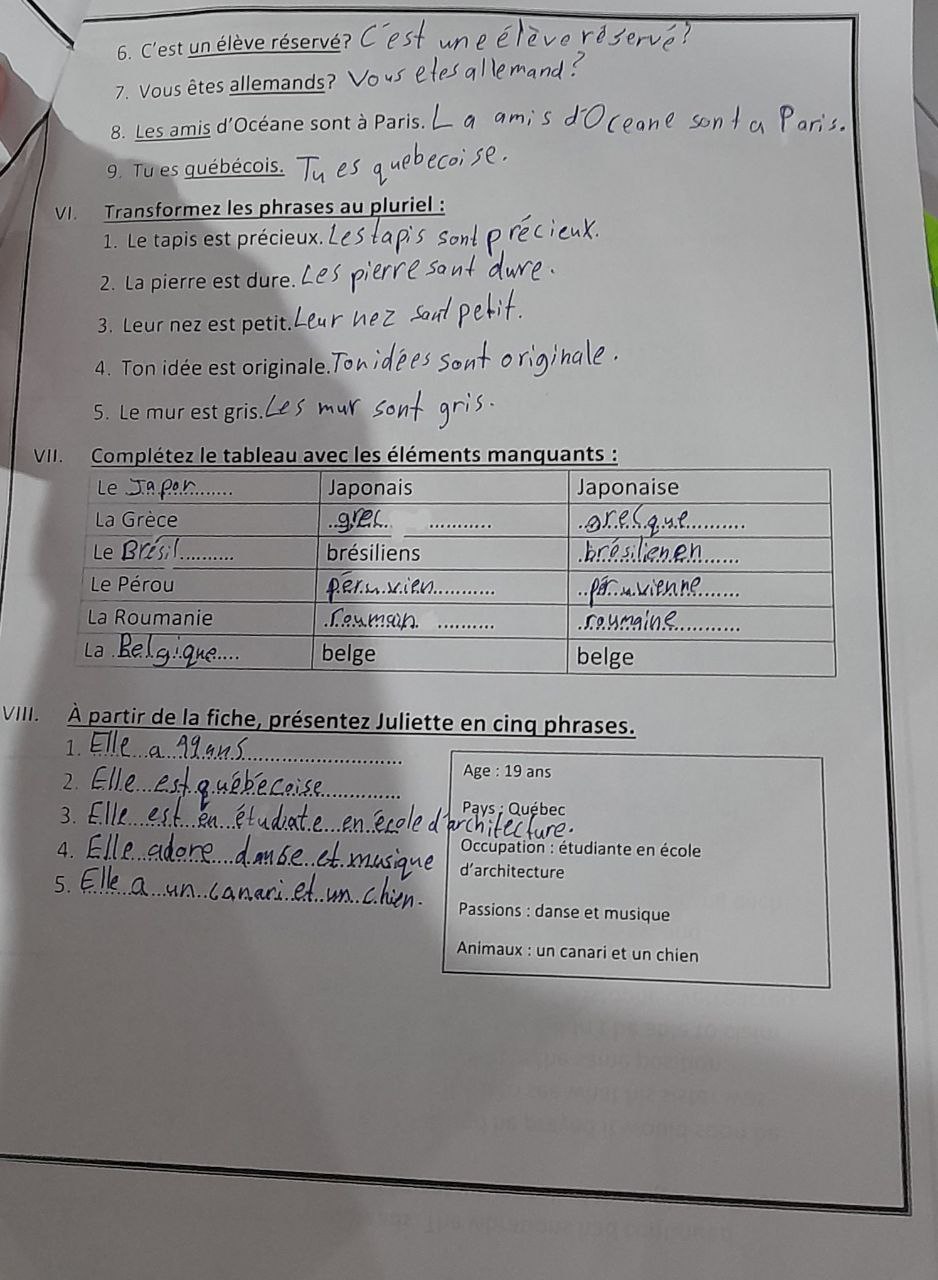 6. C'est un élève réservé? C'est une élève réservé?
7. Vous êtes allemands? Vous etes allemand?
8. Les amis d'Océane sont à Paris. La amis d'Oceane sont a Paris.
9. Tu es québécois. Tu es quebecoise.
VI. Transformez les phrases au pluriel :
1. Le tapis est précieux. Les tapis sont précieux.
2. La pierre est dure. Les pierre sont dure.
3. Leur nez est petit. Leur nez sont petit.
4. Ton idée est originale. Ton idées sont originale.
5. Le mur est gris. Les mur sont gris.
VII. Complétez le tableau avec les éléments manquants :
Le Japon....... Japonais Japonaise
La Grèce ..grec. ............ ..gresque...........
Le Brésil.......... brésiliens .brésilienen......
Le Pérou péruvien........... ..péruvienne.......
La Roumanie .roumain. .......... .roumaine............
La .Belgique.... belge belge
VIII. À partir de la fiche, présentez Juliette en cinq phrases.
1. Elle a 19 ans..........................
2. Elle est québécoise.............
3. Elle est en étudiate en école d'architecture.
4. Elle adore danse et musique
5. Elle a un canari et un chien.
Age : 19 ans
Pays : Québec
Occupation : étudiante en école
d'architecture
Passions : danse et musique
Animaux : un canari et un chien